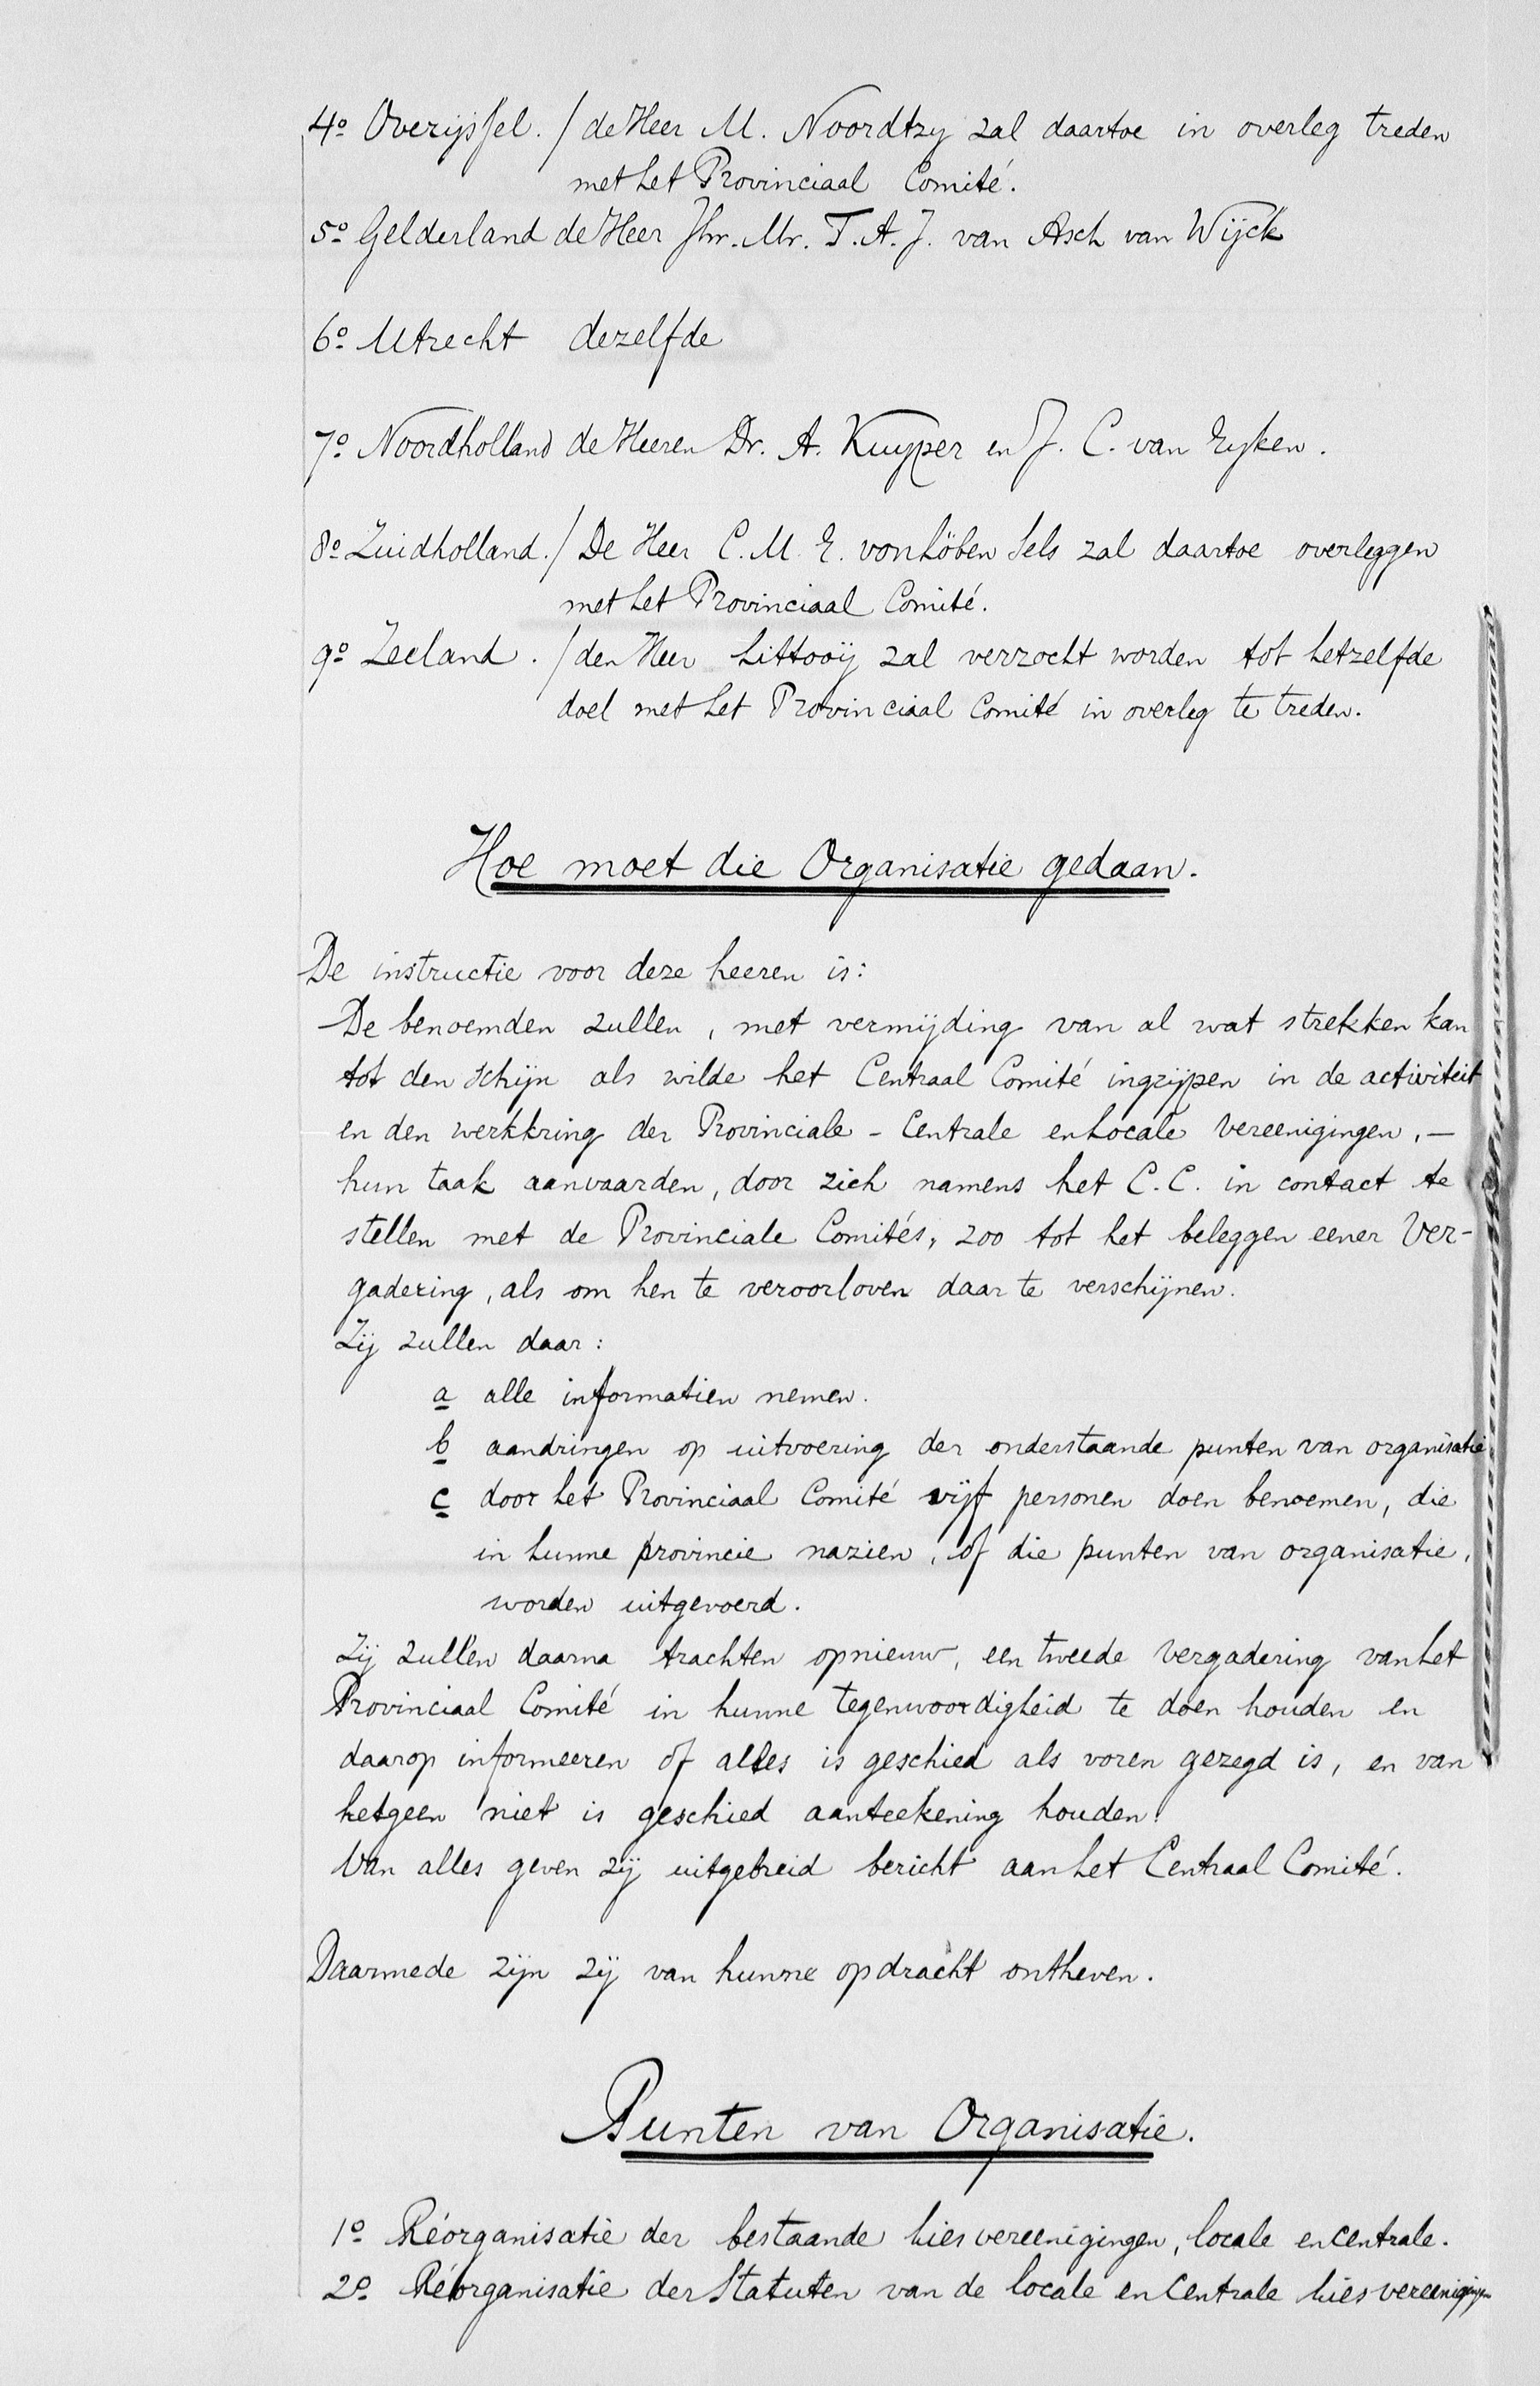 4º Overijssel. / de Heer M. Noordtzy zal daartoe in overleg treden
met het Provinciaal Comité.
5º Gelderland de Heer Jhr. Mr. T. A. J. van Asch van Wijck
6º Utrecht dezelfde
7º Noordholland de Heeren Dr. A. Kuyper en J. C. van Eyken.
8º Zuidholland. / De Heer C. M. E. von Löben Sels zal daartoe overleggen
met het Provinciaal Comité.
9º Zeeland. / den Heer Littooÿ zal verzocht worden tot hetzelfde
doel met het Provinciaal Comité in overleg te treden.
Hoe moet die Organisatie gedaan.
De instructie voor deze heeren is:
De benoemden zullen, met vermijding van al wat strekken kan
tot den schijn als wilde het Centraal Comité ingrijpen in de activiteit
en den werkkring der Provinciale - Centrale en Locale Vereenigingen, —
hun taak aanvaarden, door zich namens het C. C. in contact te
stellen met de Provinciale Comités, zoo tot het beleggen eener Ver-
gadering, als om hen te veroorloven daar te verschijnen.
Zij zullen daar:
a alle informatien nemen.
b aandringen op uitvoering der onderstaande punten van organisatie
c door het Provinciaal Comité vijf personen doen benoemen, die
in hunne provincie nazien, of die punten van organisatie,
worden uitgevoerd.
Zij zullen daarna trachten opnieuw, een tweede Vergadering van het
Provinciaal Comité in hunne tegenwoordigheid te doen houden en
daarop informeeren of alles is geschied als voren gezegd is, en van
hetgeen niet is geschied aanteekening houden.
Van alles geven zij uitgebreid bericht aan het Centraal Comité.
Daarmede zijn zij van hunne opdracht ontheven.
Punten van Organisatie.
1º Réorganisatie der bestaande kiesvereenigingen, locale en centrale.
2º Réorganisatie der Statuten van de locale en Centrale kiesvereenigingen